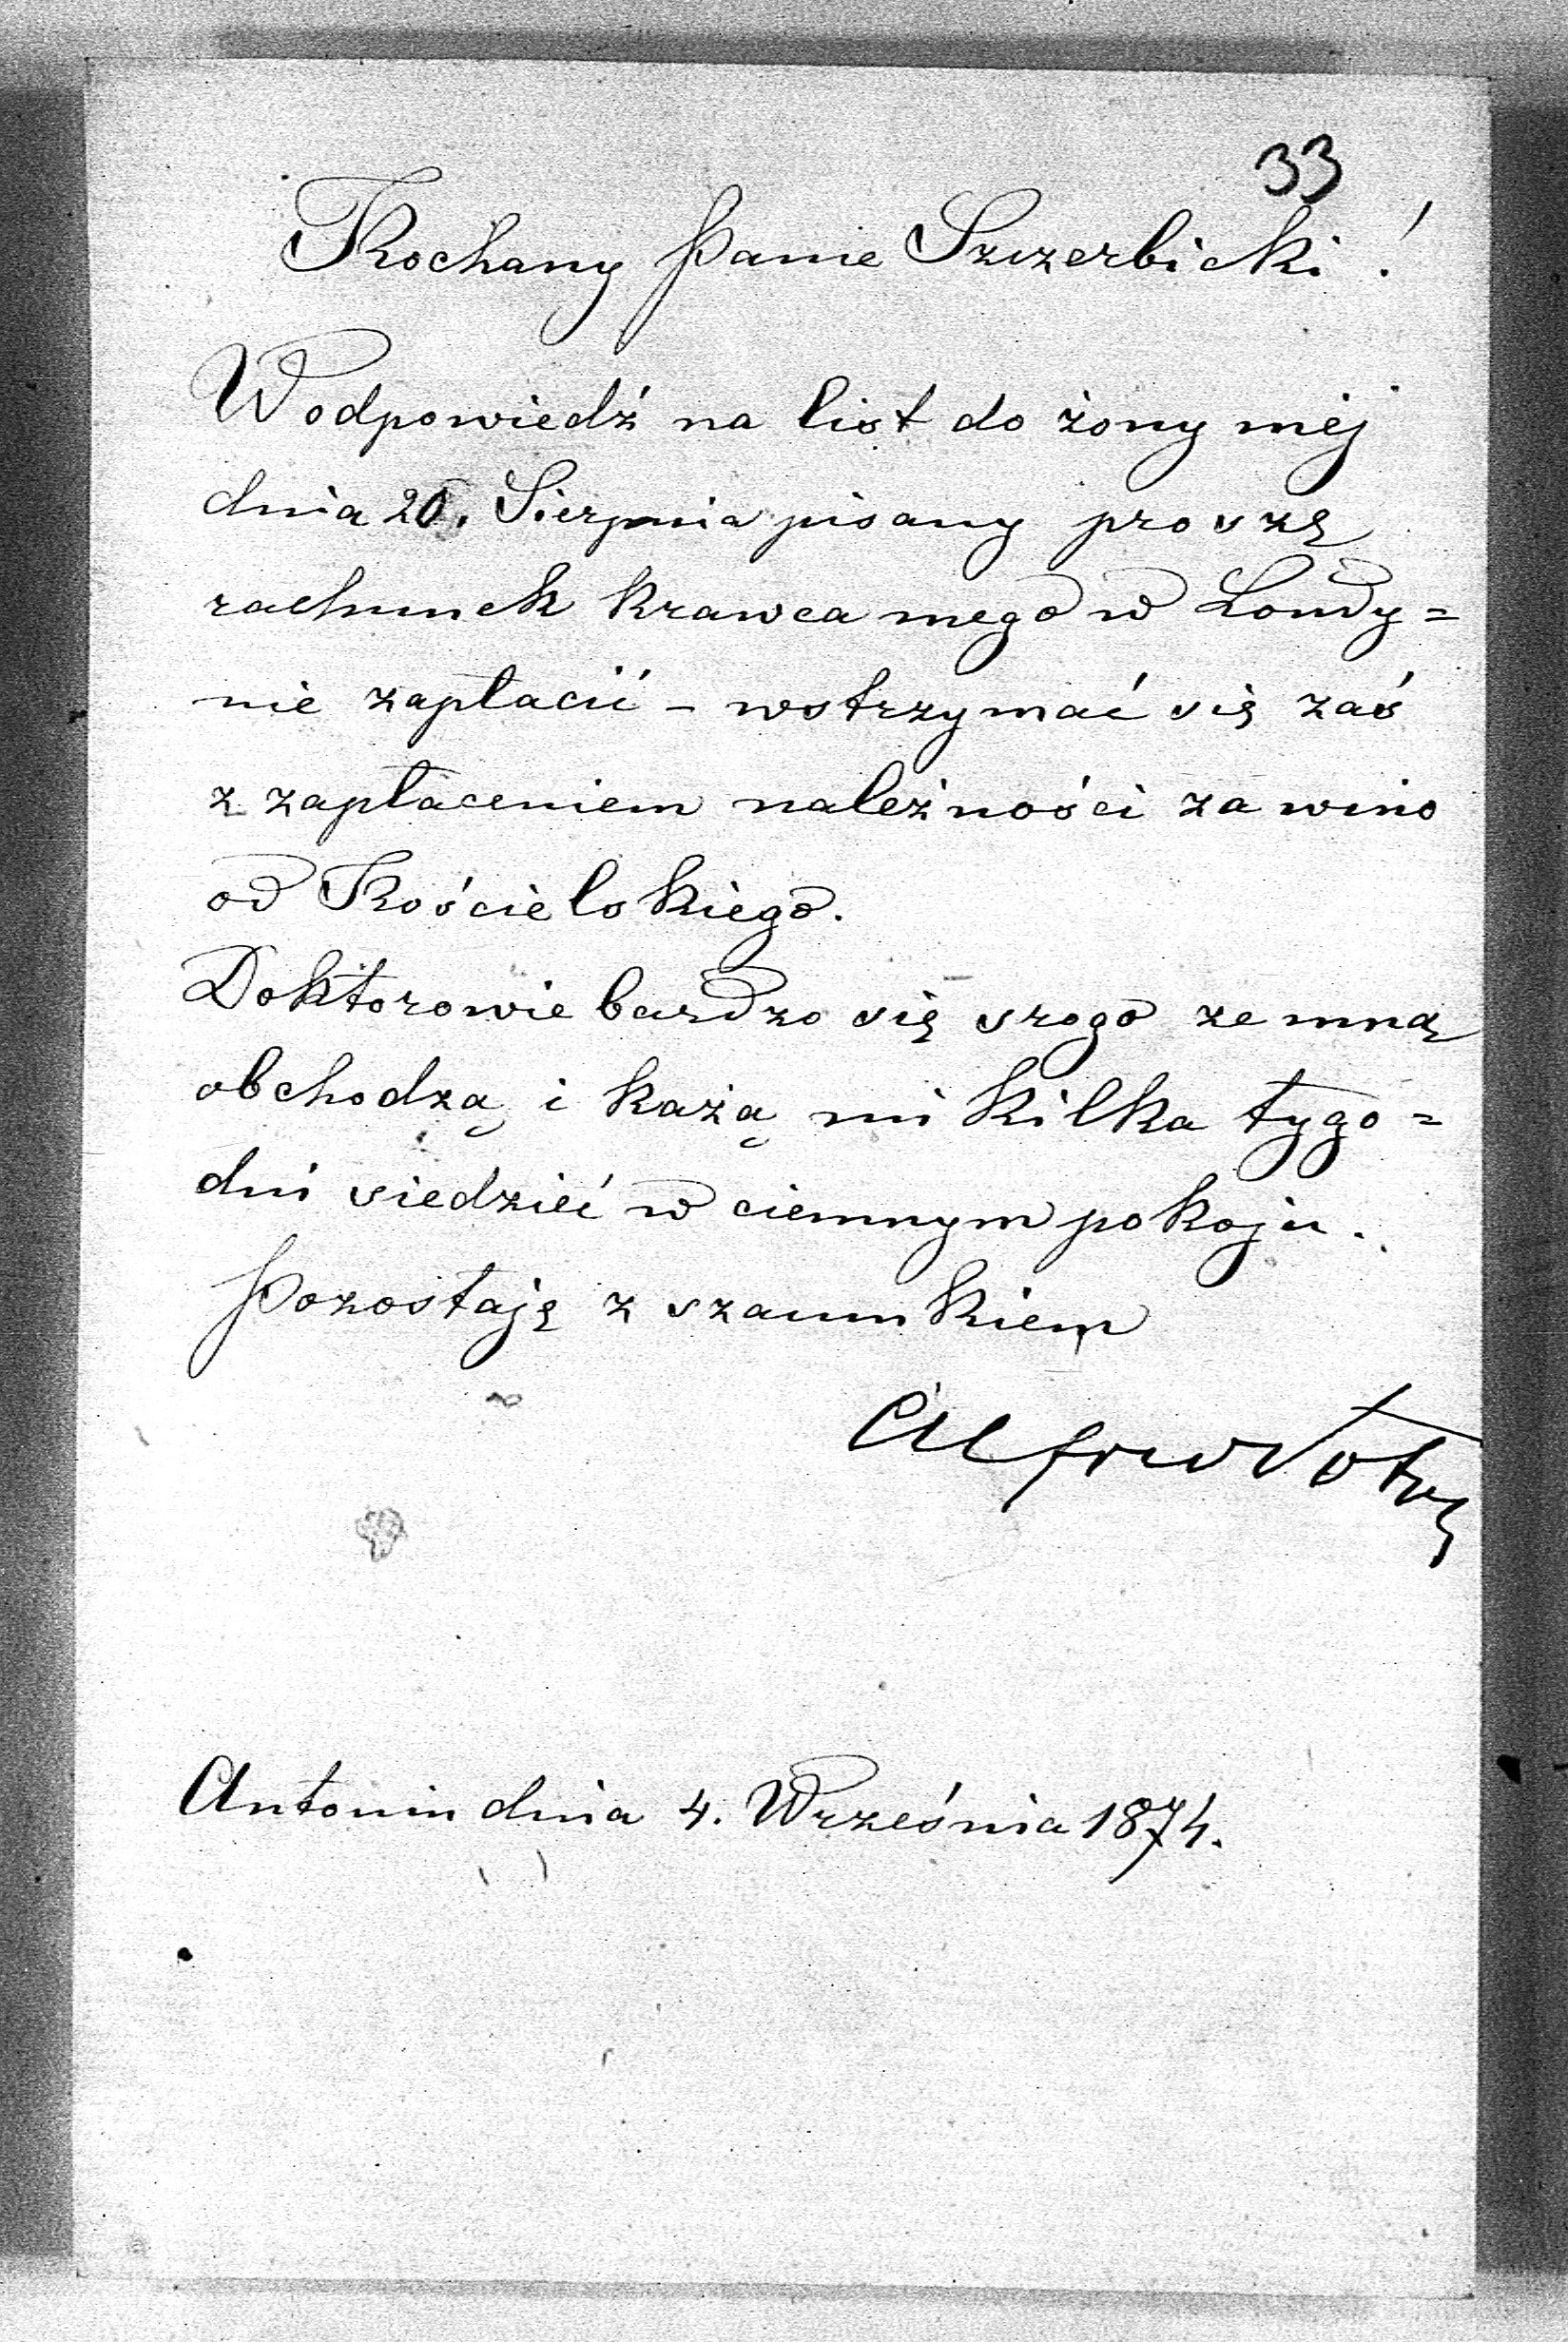 33
Kochany Panie Szczerbicki!
W odpowiedź na list do żony méj
dnia 20. Sierpnia pisany proszę
rachunek krawca mego w Londy=
nie zapłacić - wstrzymać się zaś
z zapłaceniem należności za wino
od Kościelskiego.
Doktorowie bardzo się srogo ze mną
obchodzą i każą mi kilka tygo=
dni siedzieć w ciemnym pokoju.
Pozostaję z szacunkiem
Alfred
Antonin dnia 4. Września 1874.